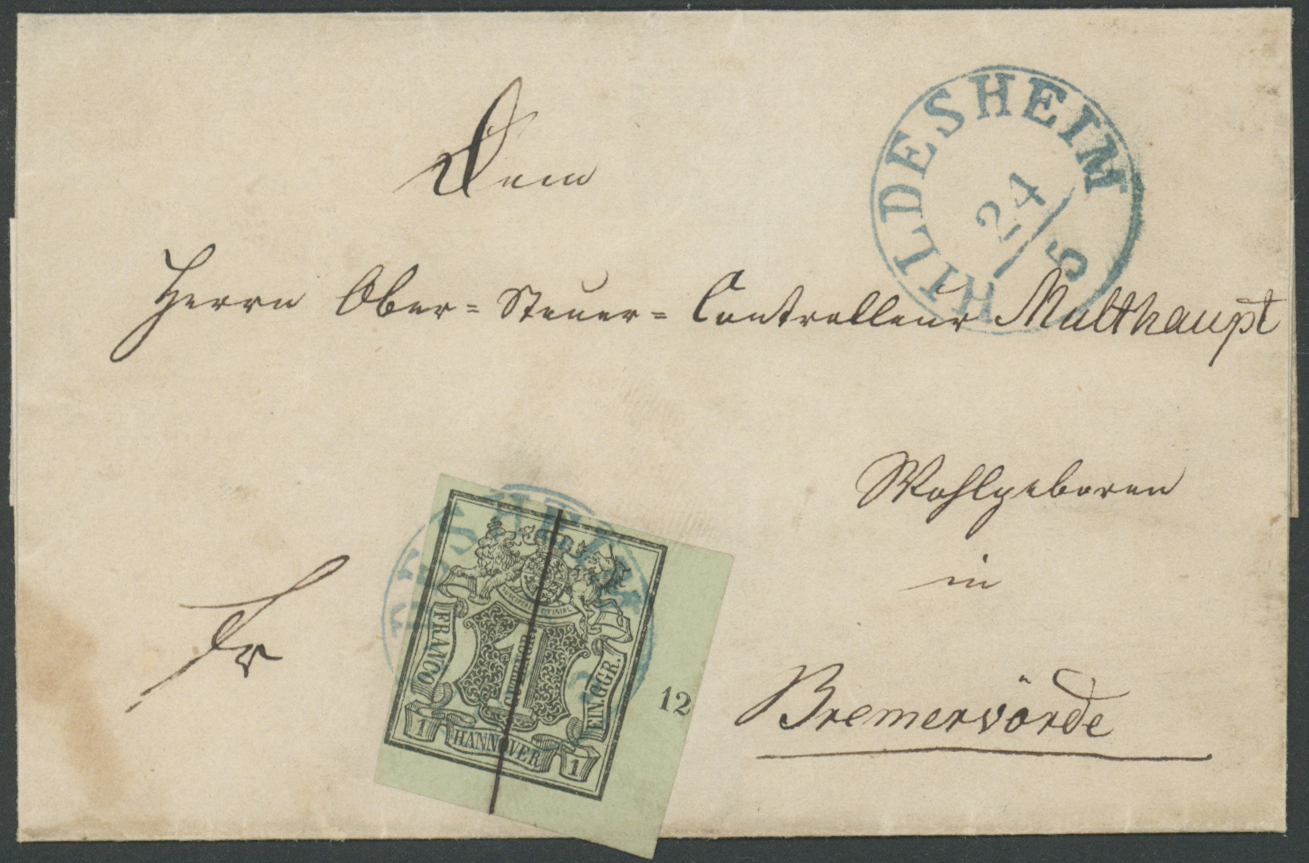 HILDESHEIM
24
5
Dem
Herrn Ober=Steuer=Controlleur Multhaupt
Wohlgeboren
in
Bremervörde
fr
FRANCO
1
GUTENGR.
EIN GGR.
12
1
HANNOVER
1